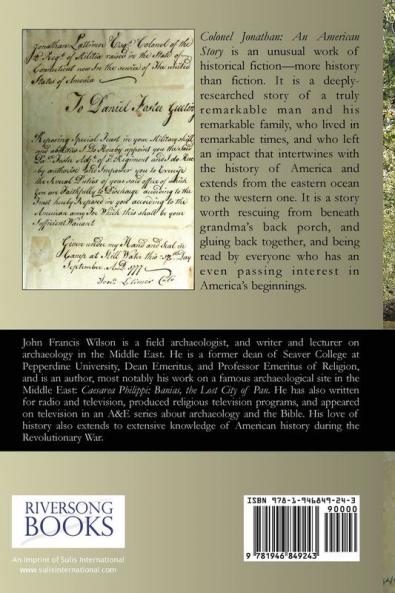 Jonathan Lattimer Esqr. Colonel of the
Regt. of Militia raised in the State of
Connecticut now in the service of The United
States of America
To Daniel Foster
Reposing Special Trust in your
and abilities I Do Hereby appoint you the said
Foster of Regiment and I do
by authorise & Impower you to Exercise
the Several Duties of your said office of which
are Faithfully to Discharge according to the
Trust hereby Reposed in you according to the
for Which this shall be your
Sufficient Warrant
Given under my Hand and Seal in
Camp at Still Water this Day
September 1777
Colonel Jonathan: An American
Story is an unusual work of
historical fiction—more history
than fiction. It is a deeply-
researched story of a truly
remarkable man and his
remarkable family, who lived in
remarkable times, and who left
an impact that intertwines with
the history of America and
extends from the eastern ocean
to the western one. It is a story
worth rescuing from beneath
grandma's back porch, and
gluing back together, and being
read by everyone who has an
even passing interest in
America's beginnings.
John Francis Wilson is a field archaeologist, and writer and lecturer on
archaeology in the Middle East. He is a former dean of Seaver College at
Pepperdine University, Dean Emeritus, and Professor Emeritus of Religion,
and is an author, most notably his work on a famous archaeological site in the
Middle East: Caesarea Philippi: Banias, the Lost City of Pan. He has also written
for radio and television, produced religious television programs, and appeared
on television in an A&E series about archaeology and the Bible. His love of
history also extends to extensive knowledge of American history during the
Revolutionary War.
RIVERSONG
BOOKS
An Imprint of Sulis International
www.sulisinternational.com
ISBN 978-1-946849-24-3
90000
9 781946 849243